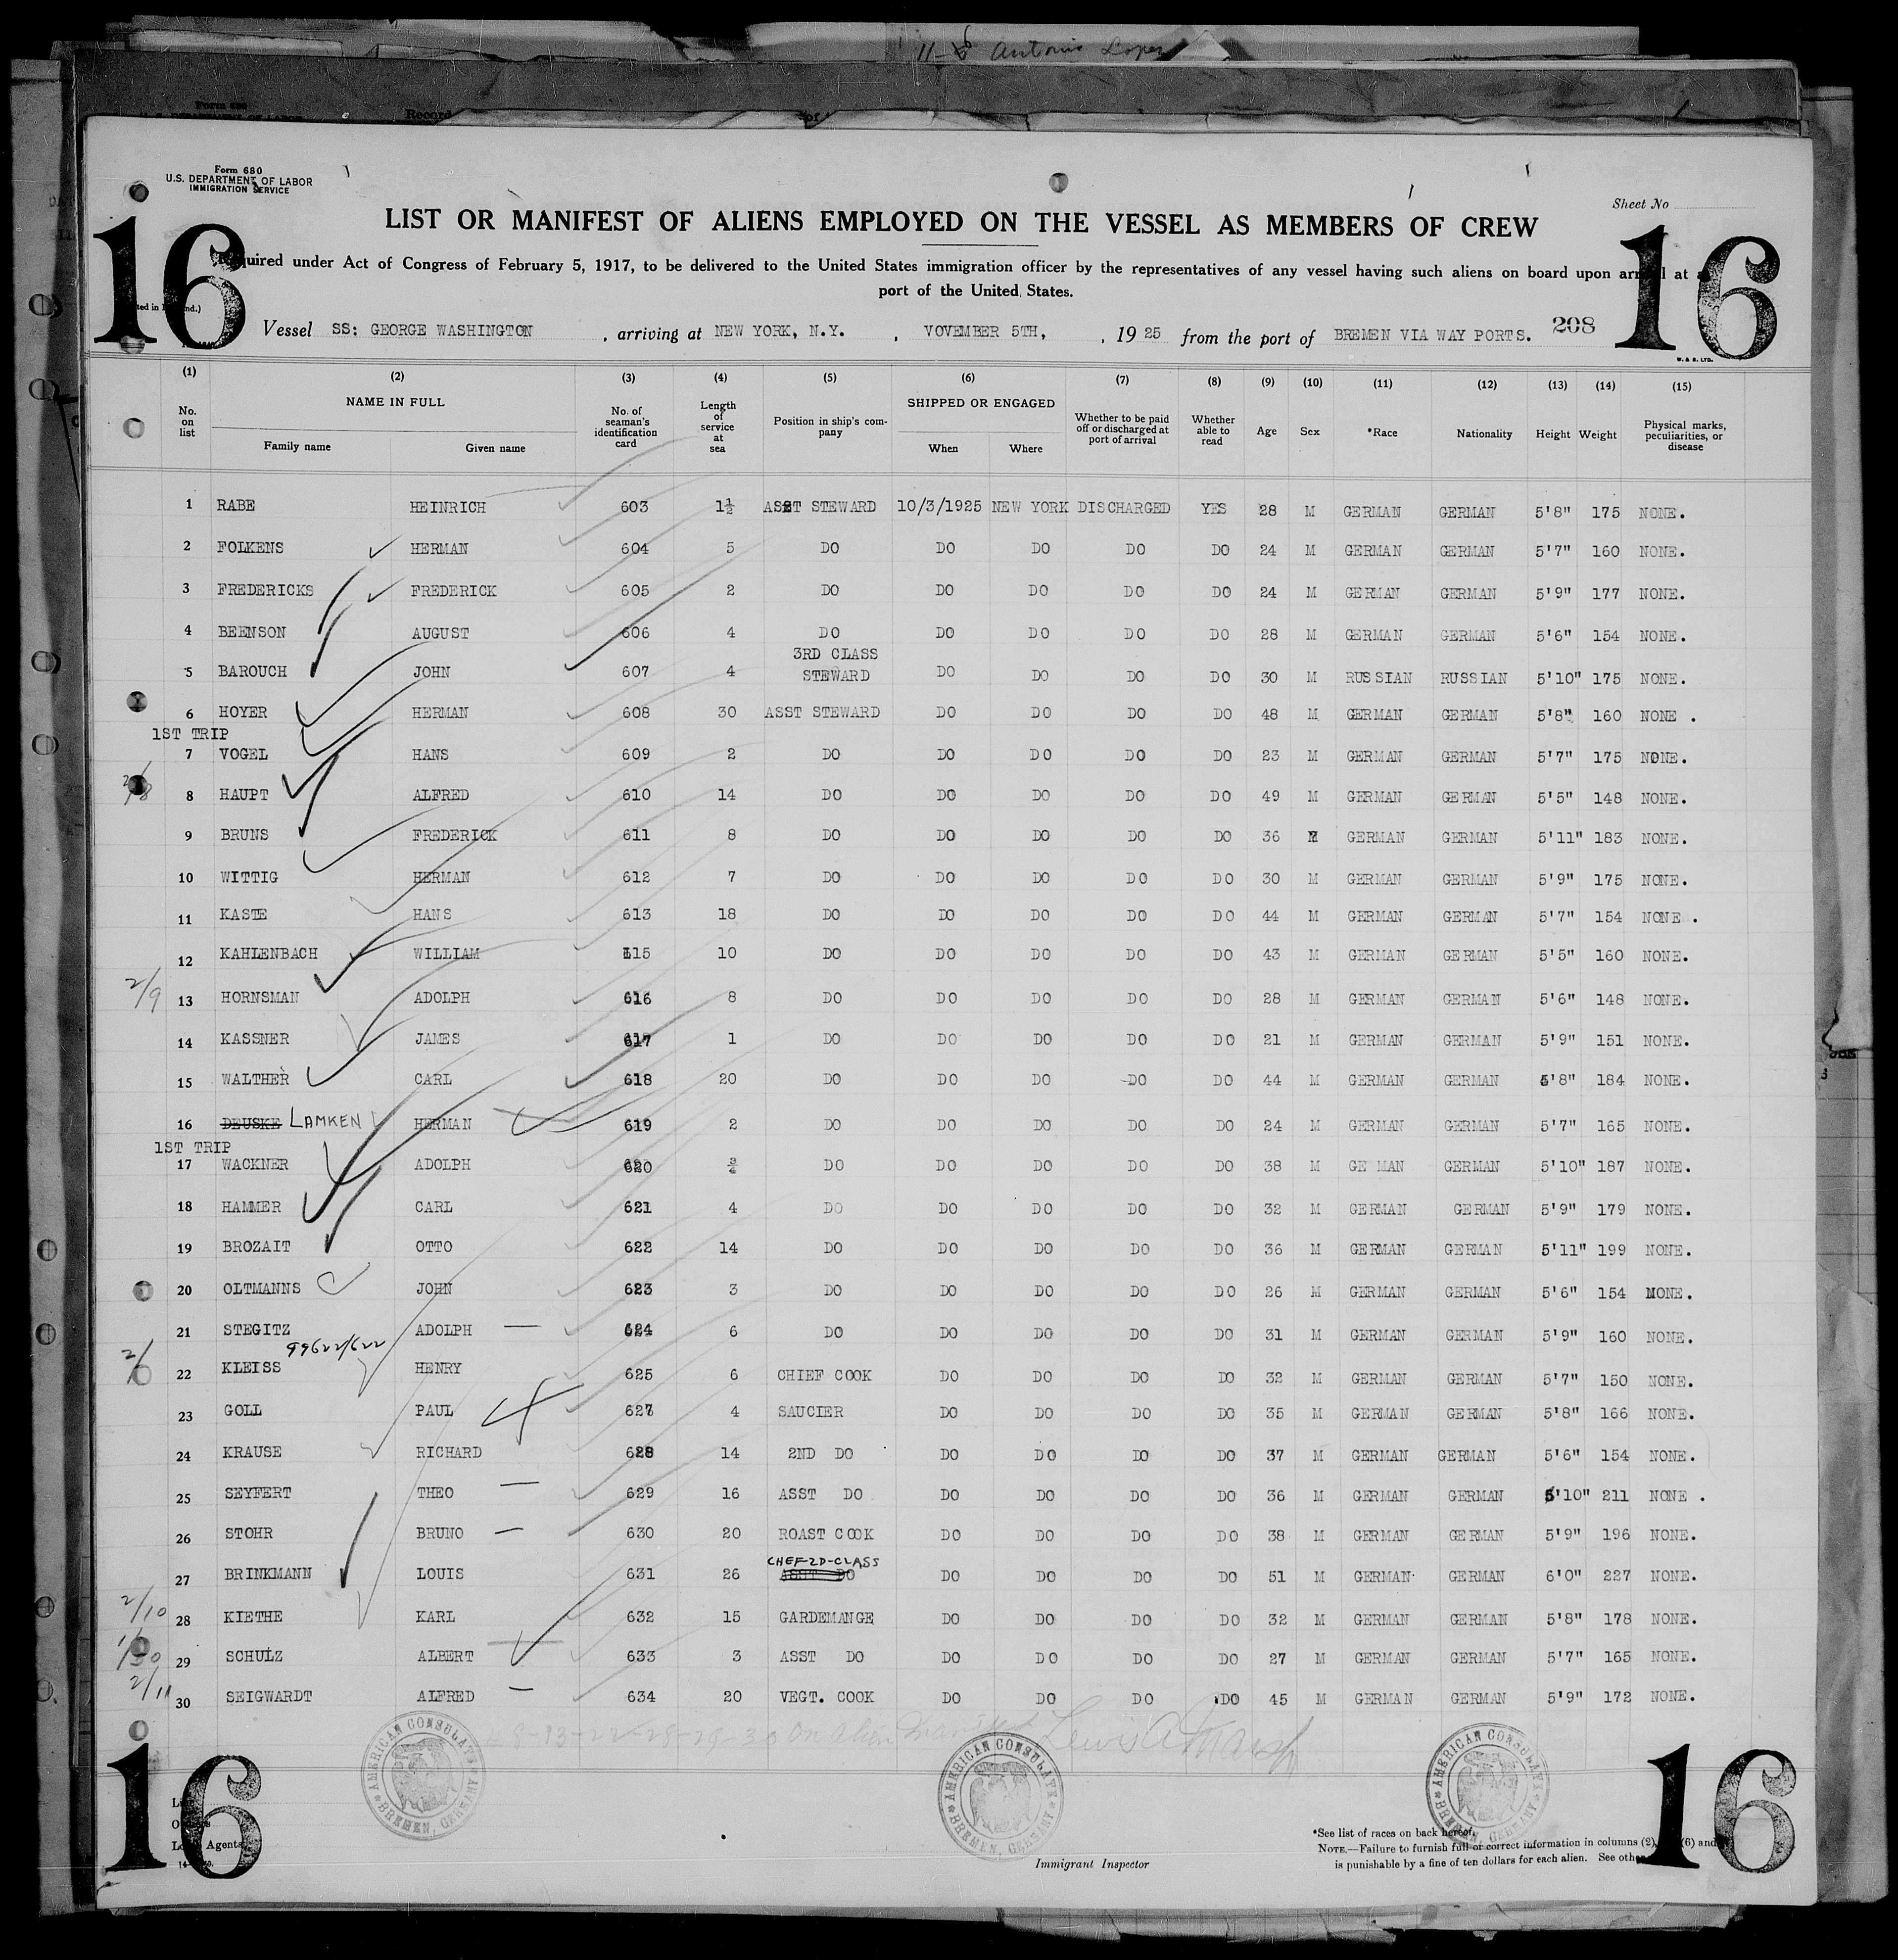 11-8 Antonio Lopez
Form 680
Record
Form 680
U.S. DEPARTMENT OF LABOR
IMMIGRATION SERVICE
Sheet No
16 16
LIST OR MANIFEST OF ALIENS EMPLOYED ON THE VESSEL AS MEMBERS OF CREW
Required under Act of Congress of February 5, 1917, to be delivered to the United States immigration officer by the representatives of any vessel having such aliens on board upon arrival at a
port of the United States.
Vessel SS: GEORGE WASHINGTON , arriving at NEW YORK, N.Y. , VOVEMBER 5TH, , 19 25 from the port of BREMEN VIA WAY PORTS. 208
W. & S. LTD.
(1) (2) (3) (4) (5) (6) (7) (8) (9) (10) (11) (12) (13) (14) (15)
No. on list NAME IN FULL Family name Given name No. of seaman's identification card Length of service at sea Position in ship's company SHIPPED OR ENGAGED When Where Whether to be paid off or discharged at port of arrival Whether able to read Age Sex *Race Nationality Height Weight Physical marks, peculiarities, or disease
1 RABE HEINRICH 603 1½ ASST STEWARD 10/3/1925 NEW YORK DISCHARGED YES 28 M GERMAN GERMAN 5'8" 175 NONE.
2 FOLKENS HERMAN 604 5 DO DO DO DO DO 24 M GERMAN GERMAN 5'7" 160 NONE.
3 FREDERICKS FREDERICK 605 2 DO DO DO DO DO 24 M GERMAN GERMAN 5'9" 177 NONE.
4 BEENSON AUGUST 606 4 DO DO DO DO DO 28 M GERMAN GERMAN 5'6" 154 NONE.
5 BAROUCH JOHN 607 4 3RD CLASS STEWARD DO DO DO DO 30 M RUSSIAN RUSSIAN 5'10" 175 NONE.
6 HOYER HERMAN 608 30 ASST STEWARD DO DO DO DO 48 M GERMAN GERMAN 5'8" 160 NONE .
1ST TRIP
7 VOGEL HANS 609 2 DO DO DO DO DO 23 M GERMAN GERMAN 5'7" 175 NONE.
2/8 8 HAUPT ALFRED 610 14 DO DO DO DO DO 49 M GERMAN GERMAN 5'5" 148 NONE.
9 BRUNS FREDERICK 611 8 DO DO DO DO DO 36 M GERMAN GERMAN 5'11" 183 NONE.
10 WITTIG HERMAN 612 7 DO DO DO DO DO 30 M GERMAN GERMAN 5'9" 175 NONE.
11 KASTE HANS 613 18 DO DO DO DO DO 44 M GERMAN GERMAN 5'7" 154 NONE .
12 KAHLENBACH WILLIAM 615 10 DO DO DO DO DO 43 M GERMAN GERMAN 5'5" 160 NONE.
2/9 13 HORNSMAN ADOLPH 616 8 DO DO DO DO DO 28 M GERMAN GERMAN 5'6" 148 NONE.
14 KASSNER JAMES 617 1 DO DO DO DO DO 21 M GERMAN GERMAN 5'9" 151 NONE.
15 WALTHER CARL 618 20 DO DO DO DO DO 44 M GERMAN GERMAN 5'8" 184 NONE.
16 DEUSKE LAMKEN HERMAN 619 2 DO DO DO DO DO 24 M GERMAN GERMAN 5'7" 165 NONE.
1ST TRIP
17 WACKNER ADOLPH 620 ¾ DO DO DO DO DO 38 M GE MAN GERMAN 5'10" 187 NONE.
18 HAMMER CARL 621 4 DO DO DO DO DO 32 M GERMAN GERMAN 5'9" 179 NONE.
19 BROZAIT OTTO 622 14 DO DO DO DO DO 36 M GERMAN GERMAN 5'11" 199 NONE.
20 OLTMANNS JOHN 623 3 DO DO DO DO DO 26 M GERMAN GERMAN 5'6" 154 NONE.
21 STEGITZ ADOLPH 624 6 DO DO DO DO DO 31 M GERMAN GERMAN 5'9" 160 NONE.
99622/622
22 KLEISS HENRY 625 6 CHIEF COOK DO DO DO DO 32 M GERMAN GERMAN 5'7" 150 NONE.
23 GOLL PAUL 627 4 SAUCIER DO DO DO DO 35 M GERMAN GERMAN 5'8" 166 NONE.
24 KRAUSE RICHARD 628 14 2ND DO DO DO DO DO 37 M GERMAN GERMAN 5'6" 154 NONE.
25 SEYFERT THEO 629 16 ASST DO DO DO DO DO 36 M GERMAN GERMAN 5'10" 211 NONE .
26 STOHR BRUNO 630 20 ROAST COOK DO DO DO DO 38 M GERMAN GERMAN 5'9" 196 NONE.
27 BRINKMANN LOUIS 631 26 CHEF-2D-CLASS ASST DO DO DO DO DO 51 M GERMAN GERMAN 6'0" 227 NONE.
2/10 28 KIETHE KARL 632 15 GARDEMANGE DO DO DO DO 32 M GERMAN GERMAN 5'8" 178 NONE.
1/30 29 SCHULZ ALBERT 633 3 ASST DO DO DO DO DO 27 M GERMAN GERMAN 5'7" 165 NONE.
2/11 30 SEIGWARDT ALFRED 634 20 VEGT. COOK DO DO DO DO 45 M GERMAN GERMAN 5'9" 172 NONE.
# 8-13-22-28-29-30 On Alien Manifest Lewis A Marsh
AMERICAN CONSULATE BREMEN, GERMANY
AMERICAN CONSULATE BREMEN, GERMANY
AMERICAN CONSULATE BREMEN, GERMANY
16 16
Agents
Immigrant Inspector
*See list of races on back hereof.
NOTE.—Failure to furnish full or correct information in columns (2), (6) and
is punishable by a fine of ten dollars for each alien. See other